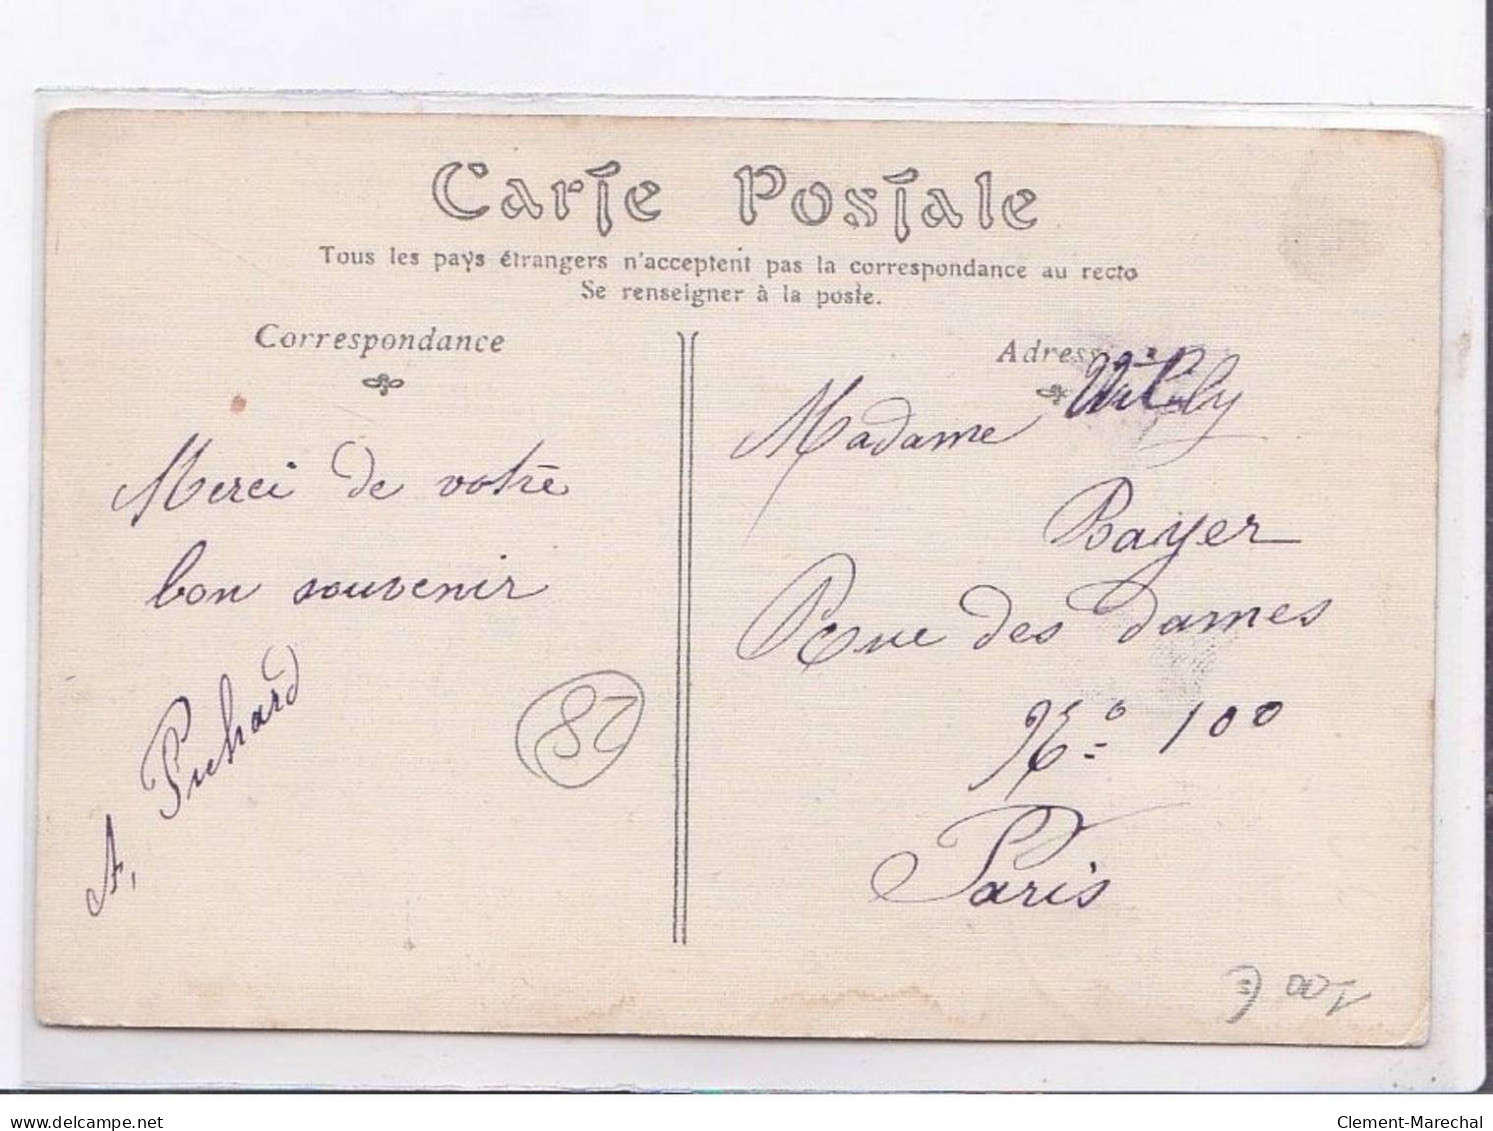 Carte Postale
Tous les pays étrangers n'acceptent pas la correspondance au recto
Se renseigner à la poste.
Correspondance
Merci de votre
bon souvenir
A,
Adresse
Madame
Bayer
Rue des Dames
No= 100
Paris
82
100 €
delcampe.net
Clement-Marechal